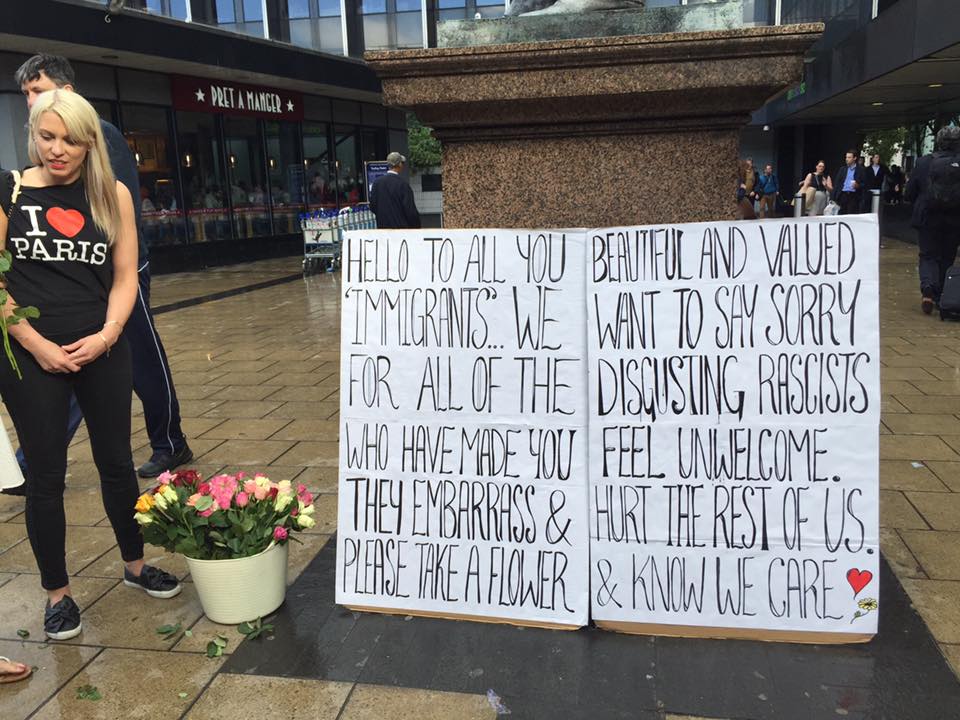 ★ PRET A MANGER ★
I ♥
PARIS
HELLO TO ALL YOU BEAUTIFUL AND VALUED
'IMMIGRANTS'... WE WANT TO SAY SORRY
FOR ALL OF THE DISGUSTING RASCISTS
WHO HAVE MADE YOU FEEL UNWELCOME.
THEY EMBARRASS & HURT THE REST OF US.
PLEASE TAKE A FLOWER & KNOW WE CARE